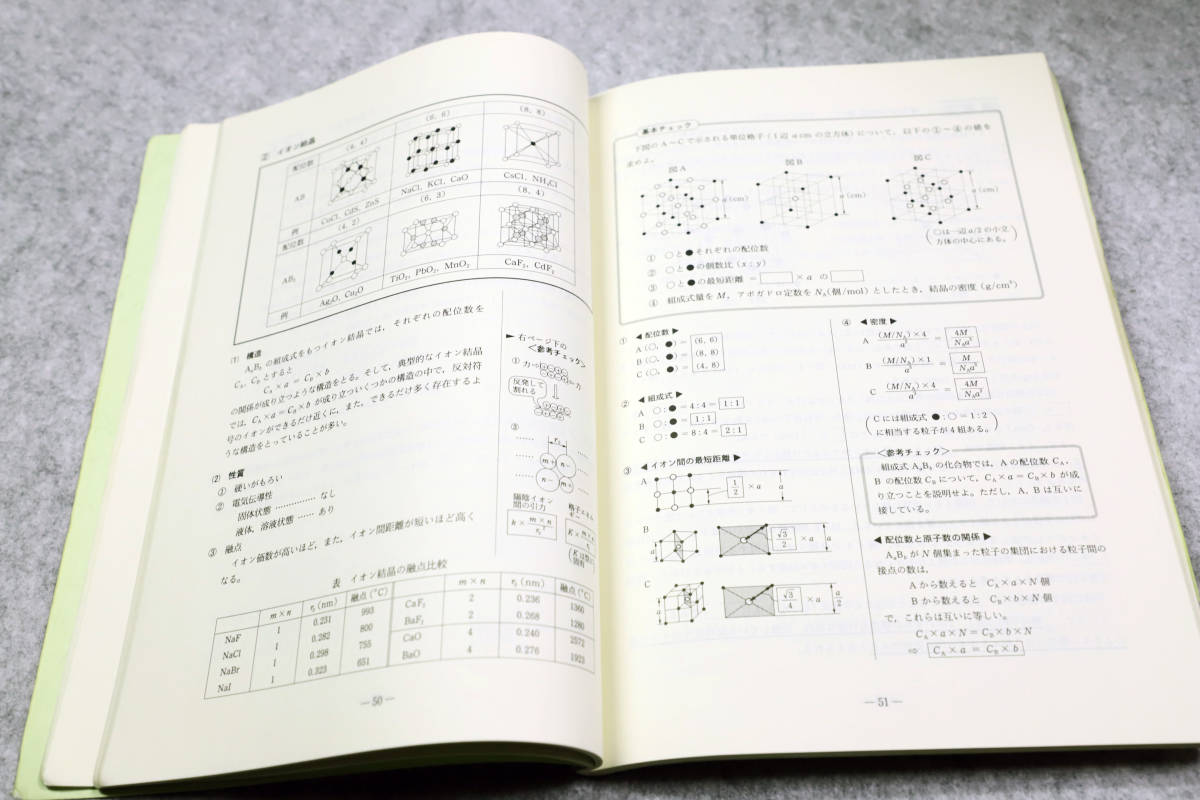 ② イオン結晶
配位数
(4, 4)
(6, 6)
(8, 8)
AB
例
CuCl, CdS, ZnS
NaCl, KCl, CaO
CsCl, NH₄Cl
配位数
(4, 2)
(6, 3)
(8, 4)
AB₂
例
Ag₂O, Cu₂O
TiO₂, PbO₂, MnO₂
CaF₂, CdF₂
(1) 構造
AₐB_bの組成式をもつイオン結晶では,それぞれの配位数を
C_A, C_Bとすると
C_A × a = C_B × b
の関係が成り立つような構造をとる。そして,典型的なイオン結晶
では,C_A × a = C_B × b が成り立ついくつかの構造の中で,反対符
号のイオンができるだけ近くに,また,できるだけ多く存在するよ
うな構造をとっていることが多い。
(2) 性質
① 硬いがもろい
② 電気伝導性
固体状態 ……………… なし
液体,溶液状態 …… あり
③ 融点
イオン価数が高いほど,また,イオン間距離が短いほど高く
なる。
► 右ページ下の
<参考チェック>
① 力⇒
⇐力
反発して
割れる
③
r₀
m+ n−
n− m+
陽陰イオン
間の引力
k × m×n / r₀²
表 イオン結晶の融点比較
m×n r₀(nm) 融点(℃)
NaF 1 0.231 993
NaCl 1 0.282 800
NaBr 1 0.298 755
NaI 1 0.323 651
m×n r₀(nm) 融点(℃)
CaF₂ 2 0.236 1360
BaF₂ 2 0.268 1280
CaO 4 0.240 2572
BaO 4 0.276 1923
—50—
基本チェック
下図のA〜Cで示される単位格子(1辺 a cm の立方体)について,以下の①〜④の値を
求めよ。
図A
図B
図C
a(cm)
a(cm)
a(cm)
(○は一辺 a/2 の小立
方体の中心にある。)
① ○と●それぞれの配位数
② ○と●の個数比(x : y)
③ ○と●の最短距離 = □ × a の □
④ 組成式量を M,アボガドロ定数を N_A(個/mol)としたとき,結晶の密度(g/cm³)
① ◀ 配位数 ▶
A (○, ●) = (6, 6)
B (○, ●) = (8, 8)
C (○, ●) = (4, 8)
② ◀ 組成式 ▶
A ○:● = 4:4 = 1:1
B ○:● = 1:1
C ○:● = 8:4 = 2:1
③ ◀ イオン間の最短距離 ▶
A
1/2 × a
a
B
a
√3/2 × a
a
C
a
√3/4 × a
a/2
④ ◀ 密度 ▶
A (M/N_A)×4 / a³ = 4M / N_A a³
B (M/N_A)×1 / a³ = M / N_A a³
C (M/N_A)×4 / a³ = 4M / N_A a³
(Cには組成式 ●:○=1:2
に相当する粒子が4組ある。)
<参考チェック>
組成式 AₐB_b の化合物では,A の配位数 C_A,
B の配位数 C_B について,C_A × a = C_B × b が成
り立つことを説明せよ。ただし,A, B は互いに
接している。
◀ 配位数と原子数の関係 ▶
AₐB_b が N 個集まった粒子の集団における粒子間の
接点の数は,
A から数えると C_A × a × N 個
B から数えると C_B × b × N 個
で,これらは互いに等しい。
C_A × a × N = C_B × b × N
⇨ C_A × a = C_B × b
—51—